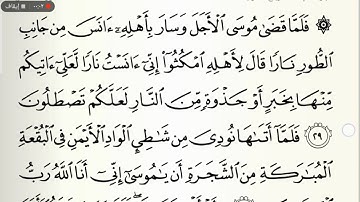 ٠٠:٠٢ إيقاف
۞ فَلَمَّا قَضَىٰ مُوسَى ٱلْأَجَلَ وَسَارَ بِأَهْلِهِۦٓ ءَانَسَ مِن جَانِبِ
ٱلطُّورِ نَارًا قَالَ لِأَهْلِهِ ٱمْكُثُوٓا۟ إِنِّىٓ ءَانَسْتُ نَارًا لَّعَلِّىٓ ءَاتِيكُم
مِّنْهَا بِخَبَرٍ أَوْ جَذْوَةٍ مِّنَ ٱلنَّارِ لَعَلَّكُمْ تَصْطَلُونَ
٢٩ فَلَمَّآ أَتَىٰهَا نُودِىَ مِن شَٰطِئِ ٱلْوَادِ ٱلْأَيْمَنِ فِى ٱلْبُقْعَةِ
ٱلْمُبَٰرَكَةِ مِنَ ٱلشَّجَرَةِ أَن يَٰمُوسَىٰٓ إِنِّىٓ أَنَا ٱللَّهُ رَبُّ